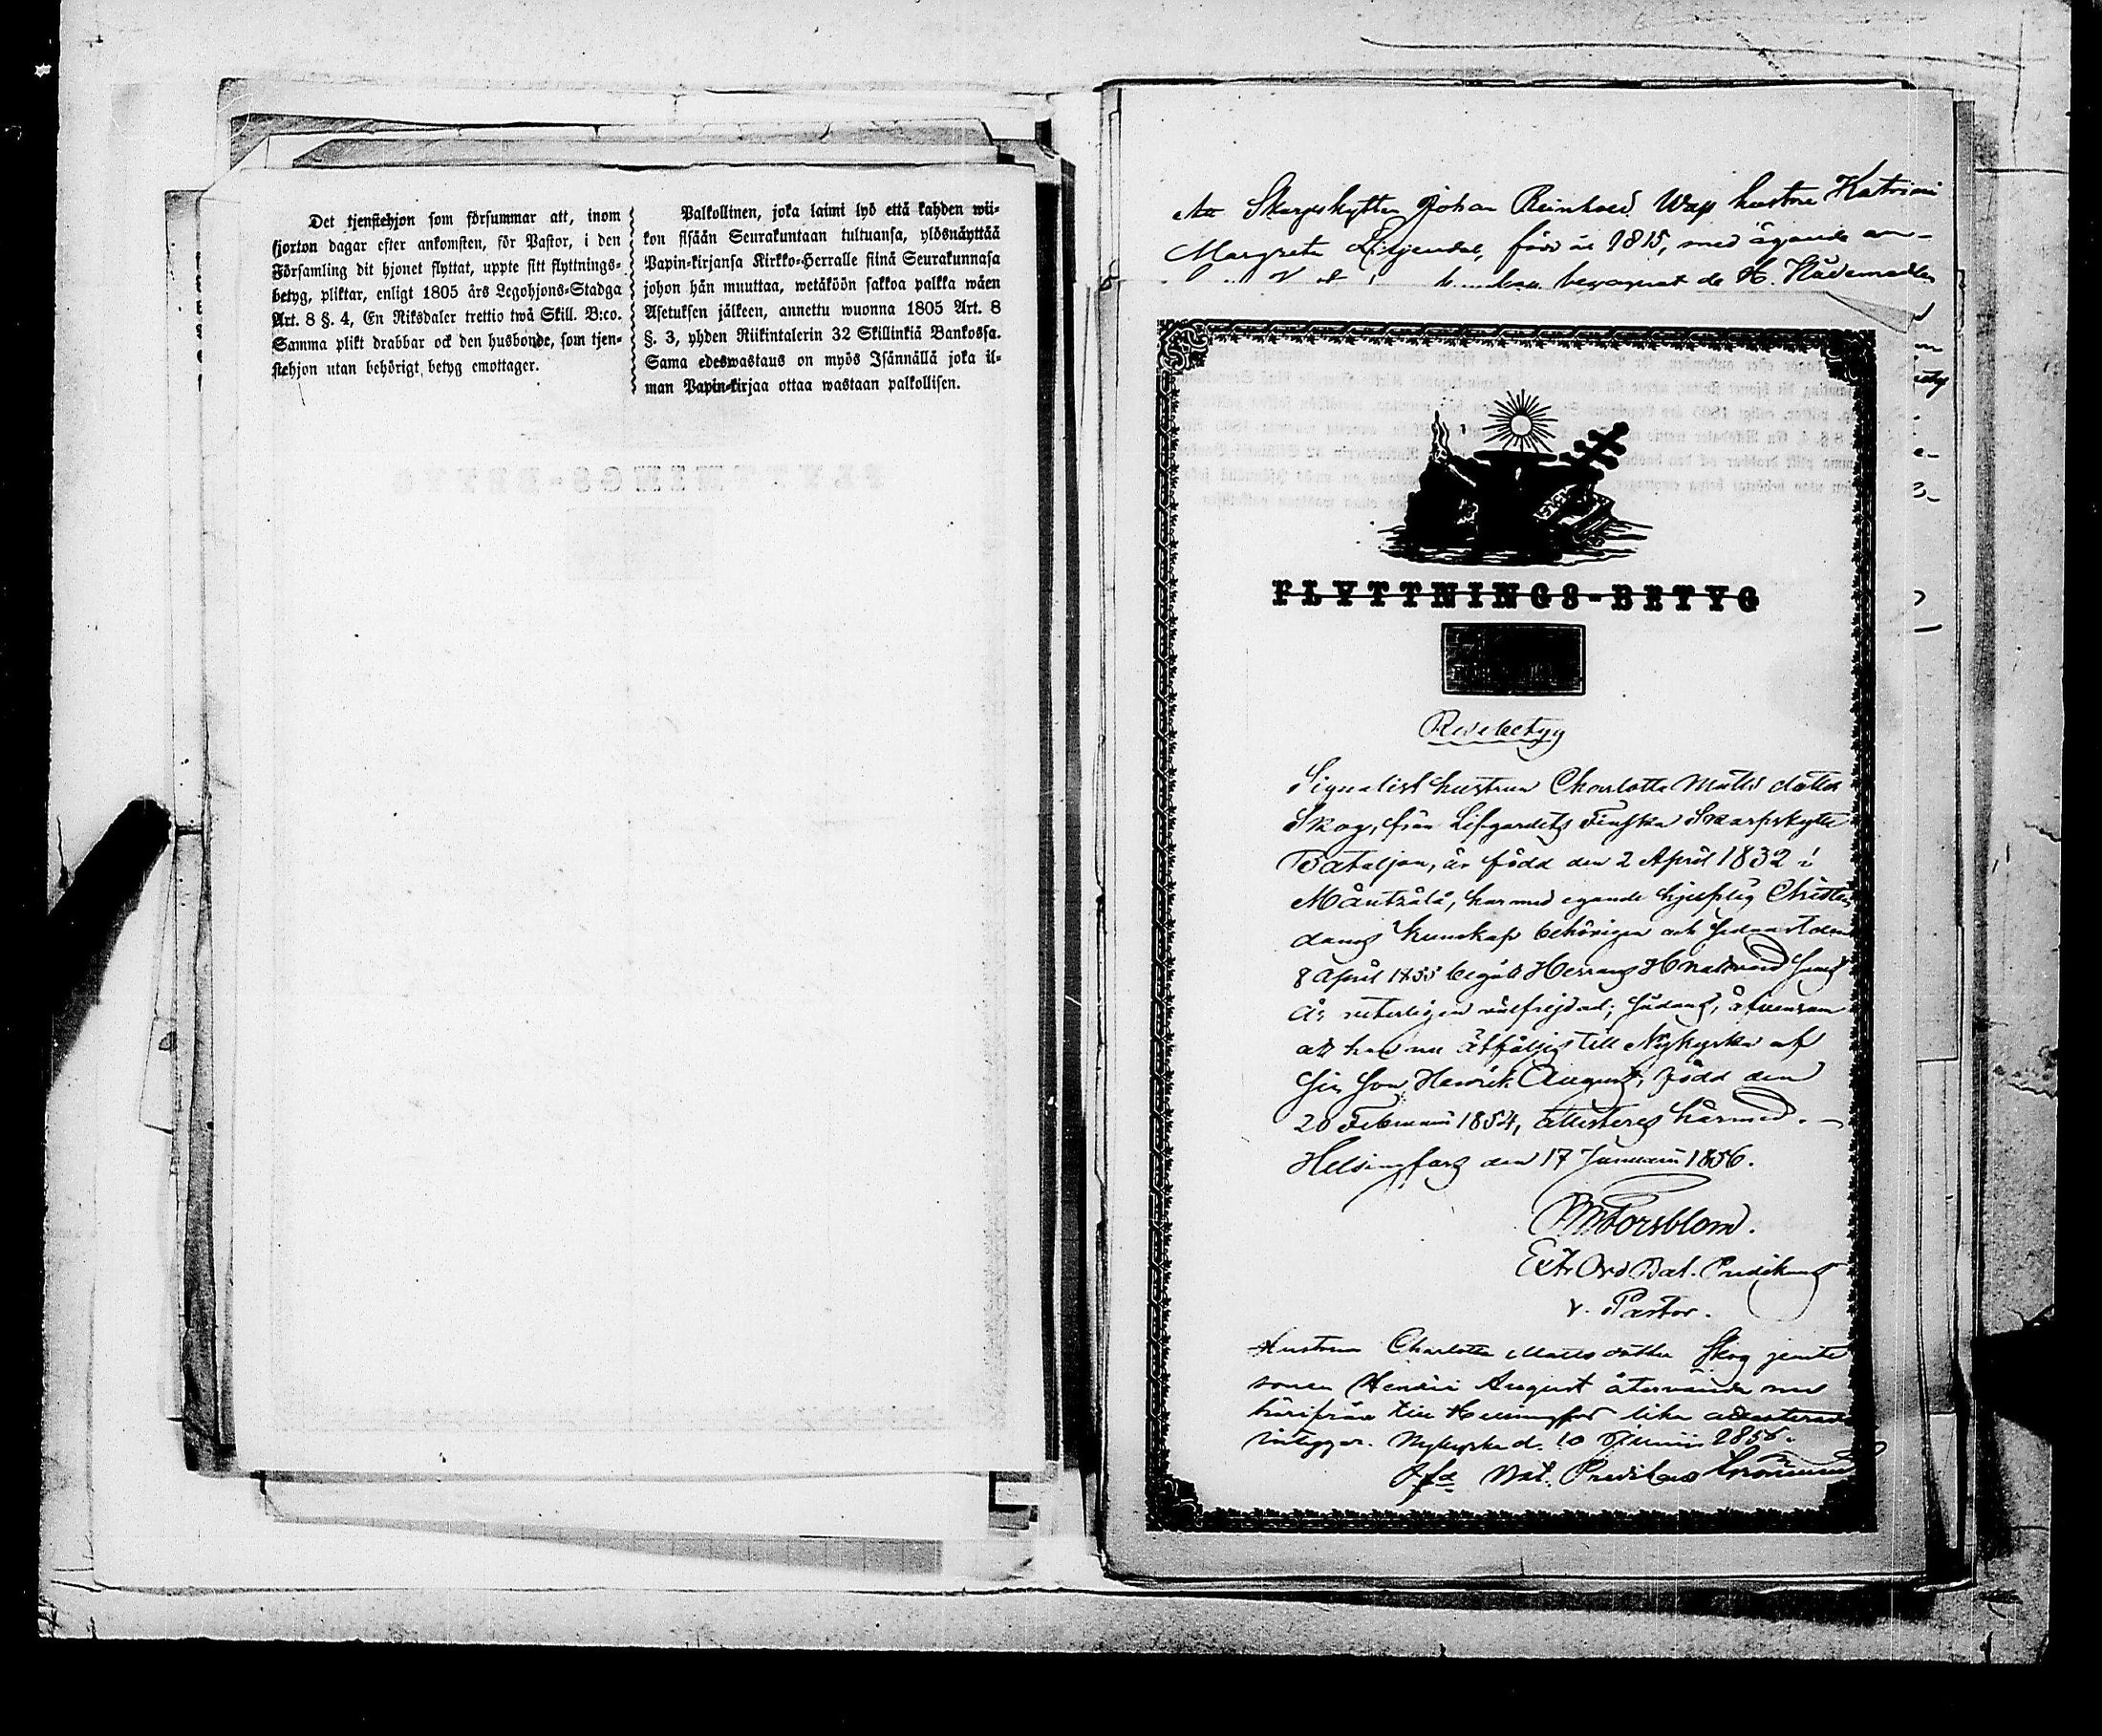 Det tjenstehjon som försummar att, inom
fjorton dagar efter ankomsten, för Pastor, i den
Församling dit hjonet flyttat, uppte sitt flyttnings-
betyg, pliktar, enligt 1805 års Legohjons-Stadga
Art. 8 §. 4, En Riksdaler trettio twå Skill. B:co.
Samma plikt drabbar ock den husbonde, som tjen-
stehjon utan behörigt betyg emottager.
Palkollinen, joka laimi lyö että kahden wii-
kon sisään Seurakuntaan tultuansa, ylösnäyttää
Papin-kirjansa Kirkko-Herralle siinä Seurakunnasa
johon hän muuttaa, wetäköön sakkoa palkka wäen
Asetuksen jälkeen, annettu wuonna 1805 Art. 8
§. 3, yhden Riikintalerin 32 Skillinkiä Bankossa.
Sama edeswastaus on myös Isännällä joka il-
man Papin-kirjaa ottaa wastaan palkollisen.
Att Skarpskytten Johan Reinhold Wass hustru Katrina
Margreta Liljendal, född år 1815, med ägande
begagnat de H. Nådemedlen
FLYTTNINGS-BETYG
Resebetyg
Signalist hustrun Charlotta Matts dotter
Skog, från Lifgardets Finska Skarpskytte
Bataljon, är född den 2 April 1832 i
Mäntzälä, har med egande hjelplig Christen
doms kunskap behörigen och sednast den
8 April 1855 begått Herrans H Nattvard samt
är veterligen välfrejdad; sådant, äfvensom
att hon nu åtföljes till Nykyrka af
sin son Henrik August, född den
20 Februari 1854, attesteras härmed. —
Helsingfors den 17 Januari 1856.
Forsblom.
Extr Ord Bat. Predikant
v. Pastor.
Hustrun Charlotta Matts dotter Skog jemte
sonen Henric August återvände nu
härifrån till Helsingfors lika attesterade
intygar. Nykyrka d. 10 1856.
Bat. Predikant